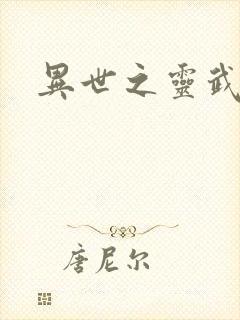 異世之靈武
唐尼尔